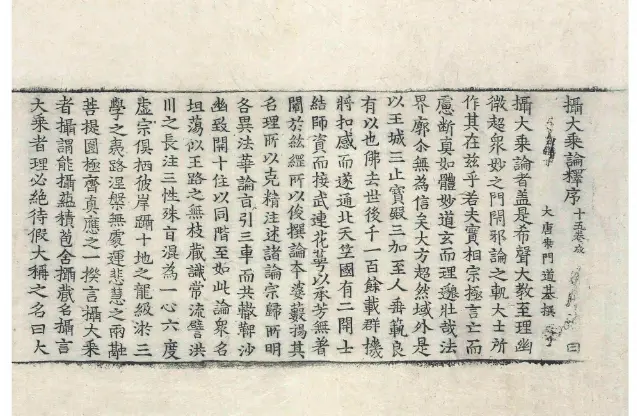 攝大乘論釋序 十五卷成
大唐桒門道基撰
攝大乘論者盖是希聲大教至理幽
微超衆妙之門閇邪論之軌大士所
作其在兹乎若夫實相宗極言亡而
慮斷真如體妙道玄而理邈壯哉法
界廓尒無為信矣大方超然域外是
以王城三止寶殿三加至人垂範良
有以也佛去世後千一百餘載群機
將扣感而遂通北天笁國有二開士
結師資而接武連花萼以承芳無著
闡於玆經所以俊撰論本婆藪揚其
名理所以克精注述諸論宗歸所明
各異法華論言引三車而共轍鞞沙
幽致開十住以同階至如此論衆名
坦蕩似王路之無枝藏識常流譬洪
川之長注三性殊旨混為一心六度
虛宗俱栖彼岸躡十地之龍級泝三
學之夷路涅槃無處運悲慧之兩
菩提圓極齊真應之一揆言攝大乘
者攝謂能攝藴積苞含攝藏名攝言
大乘者理必絶待假大稱之名曰大